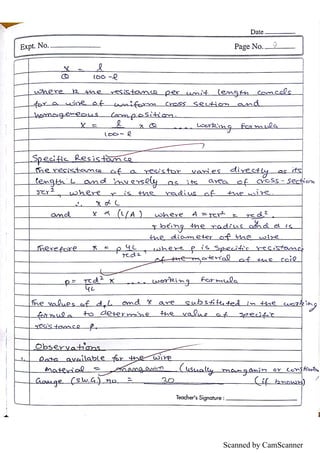 Date
Expt. No.
Page No. 9
x = l
Q 100-l
where is the resistance per unit length cancels
for a wire of uniform cross section and
homogeneous composition.
x = l x Q .... working Formula
100-l
Specific Resistance
The resistance of a resistor varies directly as its
length L and inversely as its area of cross-section
πr², where r is the radius of the wire.
∴ x α L
and x α (L/A) where A = πr² = πd²,
4
r being the radius and d is
the diameter of the wire
Therefore x = ρ 4L where ρ is specific resistance
πd²
of the material of the coil
ρ = πd² x .... working formula
4L
The values of d, L and x are substituted in the working
formula to determine the value of specific
resistance ρ.
Observations
1. Data available for the wire
Material = manganin (usually manganin or constantan
Gauge (S.W.G) no = 20 (if known)
Teacher's Signature :
Scanned by CamScanner